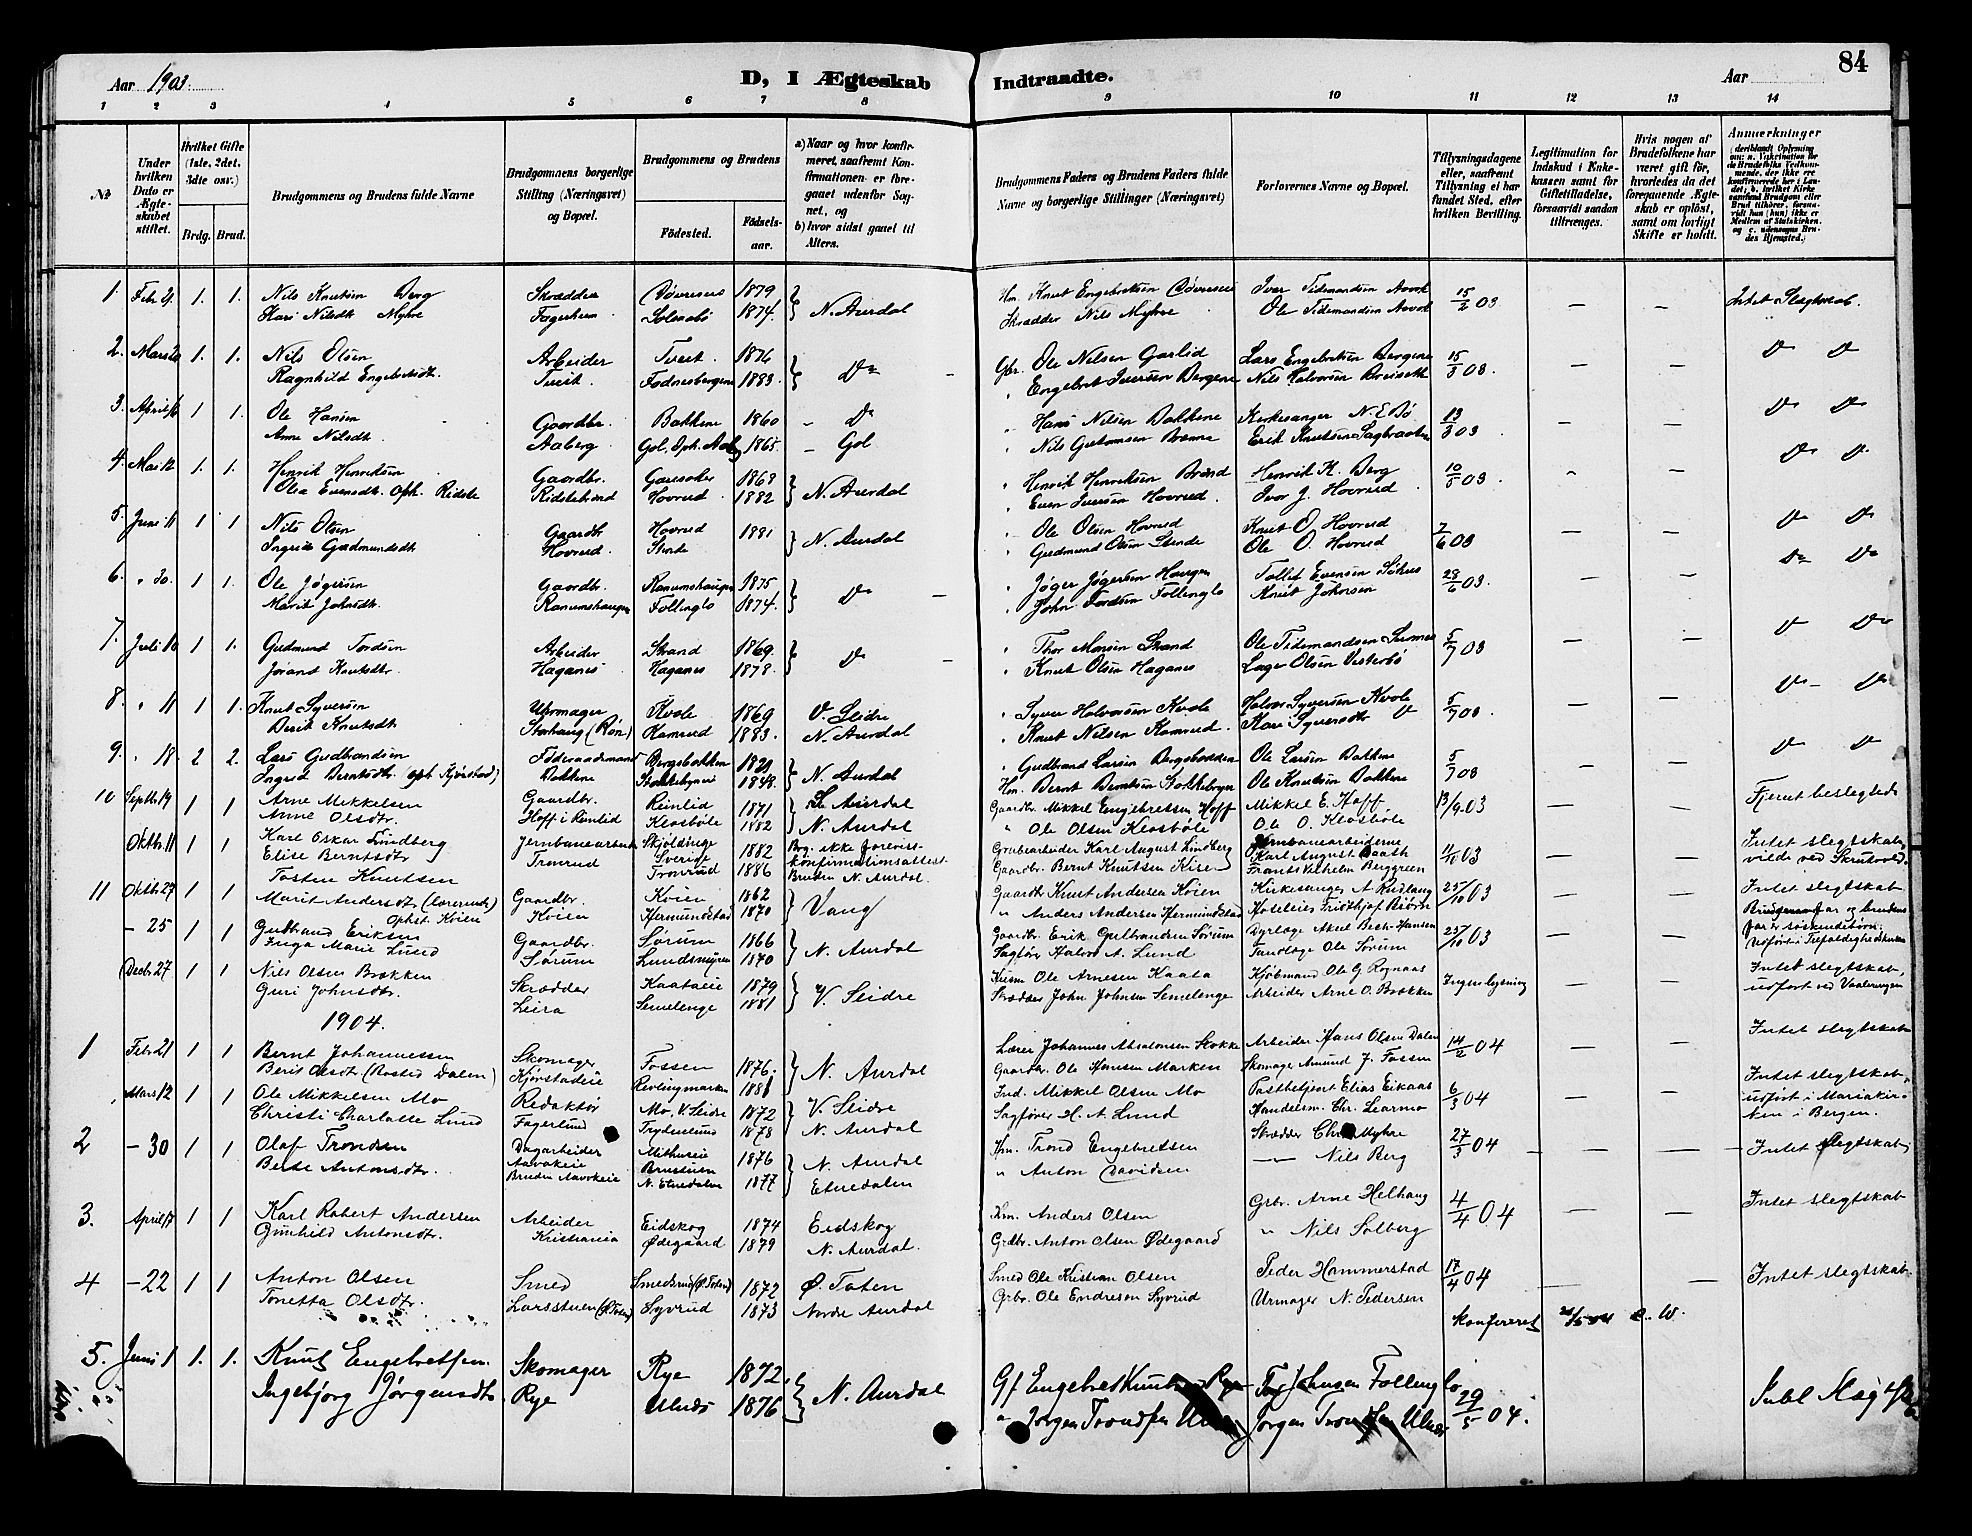 84
Aar 1903. D, I Ægteskab Indtraadte. Aar
1 2 3 4 5 6 7 8 9 10 11 12 13 14
№
Under hvilken Dato er Ægteskabet stiftet.
Hvilket Gifte (1ste, 2det, 3die osv.)
Brdg. Brud.
Brudgommens og Brudens fulde Navne
Brudgommens borgerlige Stilling (Næringsvei) og Bopæl.
Brudgommens og Brudens
Fødested. Fødselsaar.
a) Naar og hvor konfirmeret, saafremt Konfirmationen er foregaaet udenfor Sognet, og
b) hvor sidst gaaet til Alters.
Brudgommens Faders og Brudens Faders fulde Navne og borgerlige Stillinger (Næringsvei)
Forlovernes Navne og Bopæl.
Tillysningsdagene eller, saafremt Tillysning ei har fundet Sted, efter hvilken Bevilling.
Legitimation for Indskud i Enkekassen samt for Giftetilladelse, forsaavidt saadan tiltrænges.
Hvis nogen af Brudefolkene har været gift før, hvorledes da det foregaaende Ægteskab er opløst, samt om lovligt Skifte er holdt.
Anmærkninger
1. Febr 21. 1. 1. Nils Knutsen Berg Skrædder 1879 Hm. Knut Engebretsen Iver Tidemandsen 15/2 03 — — Intet Slegtskab
Kari Nilsdt. Myhre Fagerheim 1874. N. Aurdal Skrædder Nils Myhre Ole Tidemandsen
2. Mars 20 1. 1. Nils Olsen Arbeider Tveit. 1876 Do Gbr. Ole Nilsen Garlid Lars Engebretsen Bergene 15/3 03. — — Do Do
Ragnhild Engebretsdt. Tveit. Fodnesbergene 1883. Engebret Iversen Bergene Nils Halvorsen Breiseth
3. April 16 1 1. Ole Hansen Gaardbr. Bakkene 1860 Do Hans Nilsen Bakkene Kirkesanger N. E. Bø 13/3 03 — — Do Do
Anne Nilsdt. Aaberg Gol, 1865. Gol Nils Erik Knutsen Sagbraaten
4. Mai 12 1. 1. Henrik Henriksen Gaardbr. 1868 Henrik Henriksen Brand Henrik K. Berg 10/5 03. — Do Do
Olea Evensdt. Oph. Ridste Hovrud 1882 N. Aurdal Even Iversen Hovrud. Ivar J. Hovrud
5. Juni 11 1 1 Nils Olsen Gaardbr Hovrud 1881 N. Aurdal Ole Olsen Hovrud Knut O. Hovrud 7/6 03 — — Do Do
Ingrid Gudmundsdt Hovrud. Stende Gudmund Olsen Stende Ole O. Hovrud
6. " 30. 1 1. Ole Jøgersen Gaardbr. Ranumshaugen 1875 Do Jøger Jøgersen Haugen Tollef Evensen 28/6 03. — — Do Do
Marit Johnsdt. Ranumshaugen Follinglo 1874. John Tordsen Follinglo Knut Johnsen
7. Juli 10 1 1. Gudmund Tordsen Arbeider Strand 1869. Do Thor Monsen Strand Ole Tidemandsen 5/7 03 — — Do Do
Jørand Knutsdtr. Haganes Haganes 1878. Knut Olsen Haganes Olsen Vesterbø
8. " 11 1 1. Knut Syversen Uhrmager Kvale 1869 V. Slidre Syver Halvorsen Kvale Halvor Syversen Kvale 5/7 03. — — Do Do
Berit Knutsdtr Storhaug (Røn) Kamrud 1883. N. Aurdal Knut Nilsen Kamrud. Kari Syversdtr Do
9. " 18. 2 2. Lars Gudbrandsen Føderaadsmand Bergsbakken N. Aurdal Gudbrand Larsen Bergsbakken Ole Larsen Bakken 5/7 03 — — Do Do
Ingrid Berntsdtr. (oph Kjørstad) Bakkene Stokkebryn 1848. Hm. Bernt Berntsen Stokkebryn Ole Knutsen Bakkene
10 Septbr 19 1 1 Arne Mikkelsen Gaardbr. Reinlid 1871 S. Aurdal Gaardbr. Mikkel Engebretsen Hoff Mikkel E. Hoff. 13/9. 03 — — Fjernt beslegtede
Anne Olsdtr. Hoff i Reinlid Klosbøle 1882 N. Aurdal " Ole Olsen Klosbøle Ole O. Klosbøle
Oktbr 11 1 1 Karl Oskar Lindberg Jernbanearbeider Skjöldinge Sverige 1882 Brg. ikke forevist konfirmationsattest. Grubearbeider Karl August Lindberg Jernbanearbeiderne Karl August Baath 11/10 03 — — Intet slegtskab,
Elise Berntsdtr Tronrud Tronrud 1886 Bruden N. Aurdal. Gaardbr. Bernt Knutsen Frants Vilhelm Berggreen viede ved
11 Oktbr 27 1 1 Tosten Knutsen Gaardbr. Køien 1862 Vang Gaardbr Knut Andersen Køien Kirkesanger A. Rudlang 25/10 03 — — Intet slegtskab
Marit Andersdtr (Lærerinde) Ophst. Køien Køien Hermundstad 1870 " Anders Andersen Hermundstad Fridthjof Bjørn
– 25 1 1 Gulbrand Eriksen Gaardbr. Sørum 1866 N. Aurdal. Gaardbr. Erik Gulbrandsen Sørum Dyrlæge Aksel Bech-Hansen 25/10 03 — — Brudgommens far og brudens far er søskendebørn. Udført i Trefoldighedskirken
Inga Marie Lund Sørum Lundsmyren 1870 Sagfører Halvor A. Lund Tandlæge Ole Sørum
Decbr 27 1 1 Nils Olsen Brækken Skrædder Kaataeie 1879 V. Slidre Husm Ole Arnesen Kaata Kjøbmand Ole G. Rognaas Ingen lysning — — Intet slegtskab, udført ved Vaaleringen
Guri Johnsdtr. Leira Semelenge 1881 Skrædder John Johnsen Semelenge Arbeider Arne O. Brækken
1904.
1 Febr 21 1 1 Bernt Johannessen Skomager Fossen 1876. N. Aurdal Lærer Johannes Absalonsen Stokke Arbeider Hans Olsen Dalen 14/2 04 — — Intet slegtskab
Berit Olsdtr (Bosted Dalen) Kjørstadeie Revlingmarken 1881 Gaardbr. Ole Hansen Marken Skomager Amund J. Fossen
Mars 12 1 1 Ole Mikkelsen Mo Redaktør Mo, V. Slidre 1872 V. Slidre Ind. Mikkel Olsen Mo Postbetjent Elias Eikaas 6/3 04 — — Intet slegtskab, udført i Mariakirken i Bergen.
Christi Charlotte Lund Fagerlund Fagerlund 1878 N. Aurdal Sagfører H. A. Lund Handelsm. Chr. Learmo
2 – 30 1 1 Olaf Trondsen Dagarbeider 1876 N. Aurdal Hm. Trond Engebretsen Skrædder Chr. Myhre 27/3 04 — — Intet slegtskab
Berte Antonsdtr. Bruden Aavokeie N. Etnedalen 1877 Etnedalen " Anton Davidsen — Nils Berg
3. April 17 1 1 Karl Robert Andersen Arbeider Eidskog 1874 Eidskog Hm. Anders Olsen Grbr. Arne Helhaug 4/4 04 — — Intet slegtskab
Gunhild Antonsdtr. Kristiania Ødegaard 1879 N. Aurdal. Grdbr. Anton Olsen Ødegaard " Nils Solberg
4 – 22 1 1 Anton Olsen Smed Smedsrud (Ø. Toten) 1872 Ø. Toten Smed Ole Kristian Olsen Peder Hammerstad 17/4 04 — — Intet slegtskab
Tonetta Olsdtr. Larsstuen (Ø. Toten) Syvrud 1873 Nordre Aurdal Grbr. Ole Endreson Syvrud Urmager N. Pedersen
Konfereret 26/5 04 C. W.
5. Juni 1 1. 1. Knut Engebretsen. Skomager Rye 1872. N. Aurdal Gf Engebret Knutsen Rye Johnsen Follinglo 29/5 04. Subl
Ingebjørg Jørgensdtr Rye Ulnæs 1876 " Jørgen Trondsen Ulnæs Jørgen Trondsen Ulnæs